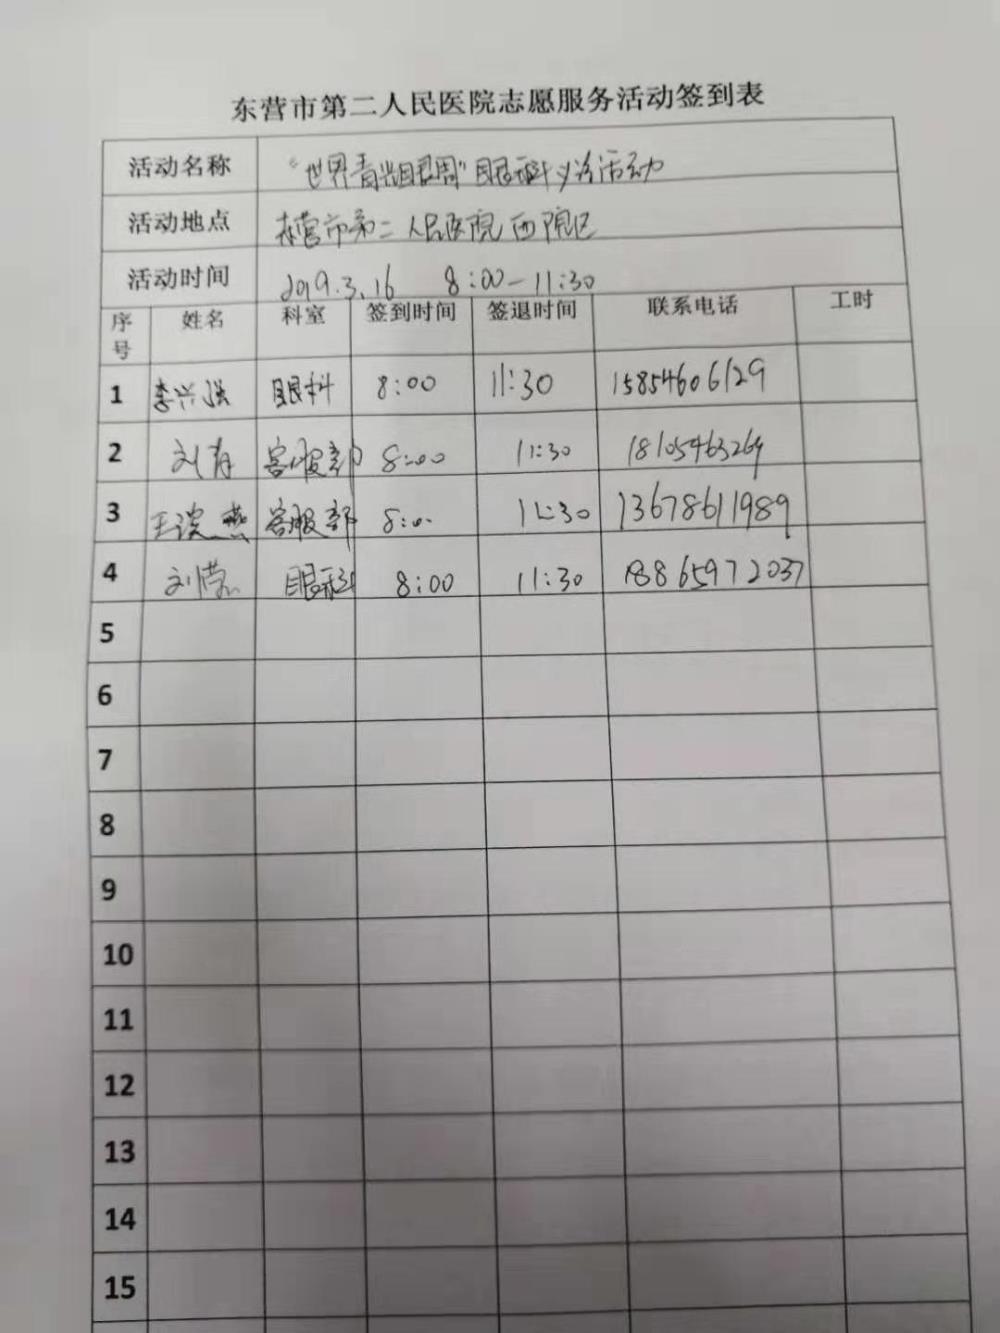 东营市第二人民医院志愿服务活动签到表
活动名称 “世界青光眼周”眼科义诊活动
活动地点 东营市第二人民医院西院区
活动时间 2019.3.16 8:00-11:30
序号 姓名 科室 签到时间 签退时间 联系电话 工时
1 李兴强 眼科 8:00 11:30 15854606129
2 刘 客服部 8:00 11:30 18105463269
3 王 燕 客服部 8:00 11:30 13678611989
4 刘 眼科 8:00 11:30 18865972037
5
6
7
8
9
10
11
12
13
14
15